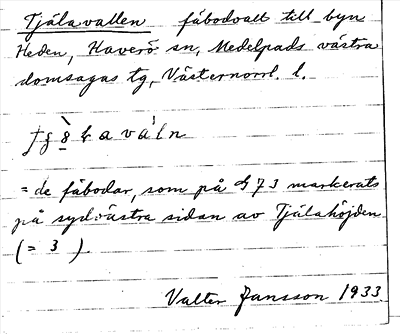 Tjälavallen fäbodvall till byn
Heden, Haverö sn, Medelpads västra
domsagas tg, Västernorrl. l.
= de fäbodar, som på G 73 markerats
på sydvästra sidan av Tjälahöjden
(= 3 ).
Valter Jansson 1933.